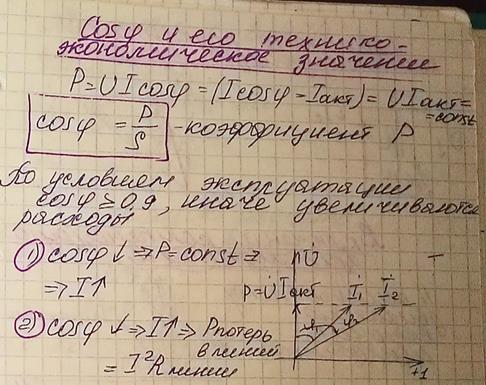 Cosφ и его технико-
экономическое значение
P=UIcosφ=(Icosφ-Iакт)=UIакт=
=const
cosφ = P/S -коэффициент P
По условиям эксплуатации
cosφ≥0,9, иначе увеличиваются
расходы
1) cosφ↓⇒P=const⇒
⇒I↑
U̇
P=U̇Iакт İ₁ İ₂
φ₁ φ₂
+1
2) cosφ↓⇒I↑⇒Pпотерь
в линии
=I²Rлинии